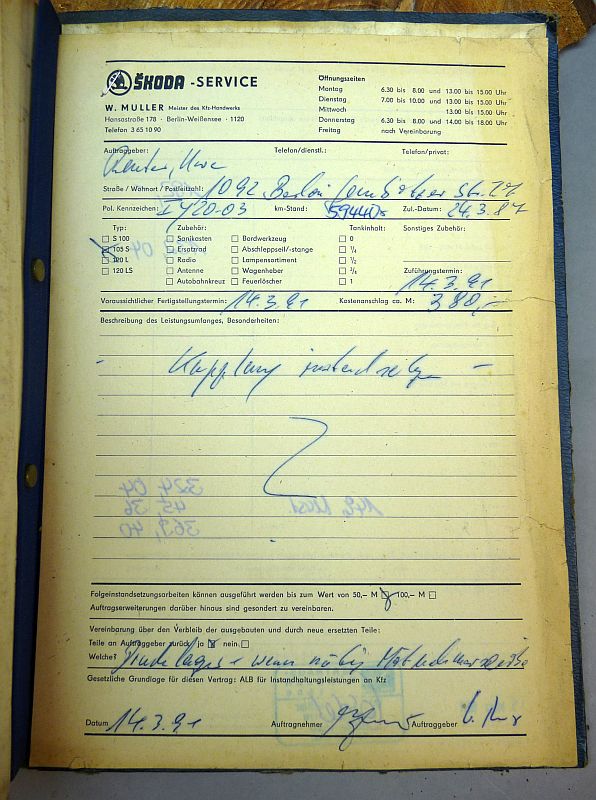 ŠKODA -SERVICE
W. MULLER Meister des Kfz-Handwerks
Hansastraße 178 · Berlin-Weißensee · 1120
Telefon 3 65 10 90
Öffnungszeiten
Montag 6.30 bis 8.00 und 13.00 bis 15.00 Uhr
Dienstag 7.00 bis 10.00 und 13.00 bis 15.00 Uhr
Mittwoch 13.00 bis 15.00 Uhr
Donnerstag 6.30 bis 8.00 und 14.00 bis 18.00 Uhr
Freitag nach Vereinbarung
Auftraggeber: Telefon/dienstl.: Telefon/privat:
Uwe
Straße / Wohnort / Postleitzahl: 1092 Berlin Str. 27
Pol. Kennzeichen: IY20-03 km-Stand: 59440 Zul.-Datum: 24.3.87
Typ: Zubehör: Tankinhalt: Sonstiges Zubehör:
S 100 Sanikasten Bordwerkzeug 0
105 S Ersatzrad Abschleppseil/-stange 1/4
120 L Radio Lampensortiment 1/2
120 LS Antenne Wagenheber 3/4
Autobahnkreuz Feuerlöscher 1
Zuführungstermin:
14.3.91
Voraussichtlicher Fertigstellungstermin: 14.3.91 Kostenanschlag ca. M: 380,-
Beschreibung des Leistungsumfanges, Besonderheiten:
- Kupplung instandsetzen -
324 04
45, 36
363, 40
Folgeinstandsetzungsarbeiten können ausgeführt werden bis zum Wert von 50,– M 100,– M
Auftragserweiterungen darüber hinaus sind gesondert zu vereinbaren.
Vereinbarung über den Verbleib der ausgebauten und durch neue ersetzten Teile:
Teile an Auftraggeber zurück: ja nein
Welche? Drucklager + wenn nötig Mitnehmerscheibe
Gesetzliche Grundlage für diesen Vertrag: ALB für Instandhaltungsleistungen an Kfz
Datum 14.3.91 Auftragnehmer Auftraggeber